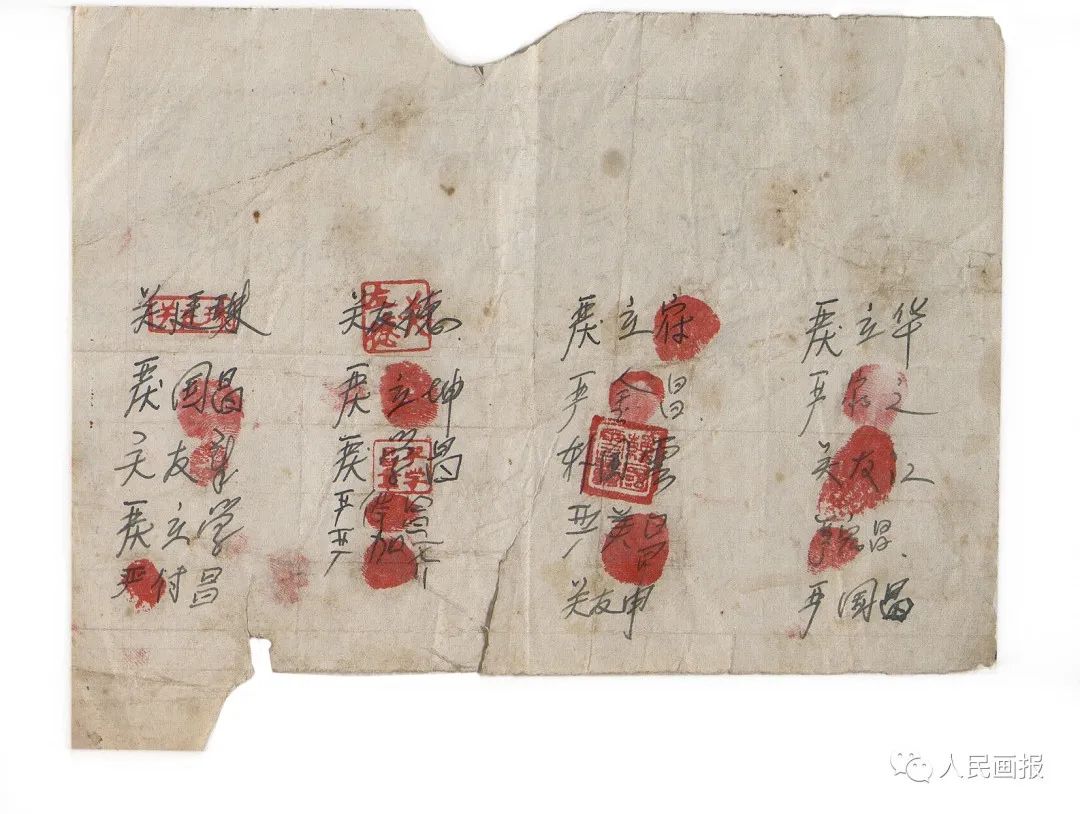 关廷珠 关友德 严立符 严立华
严国昌 严立坤 严金昌 严家之
关友章 严学昌 韩国云 关友江
严立学 严俊昌 严美昌 严宏昌
严付昌 严家齐 关友申 严国品
人民画报